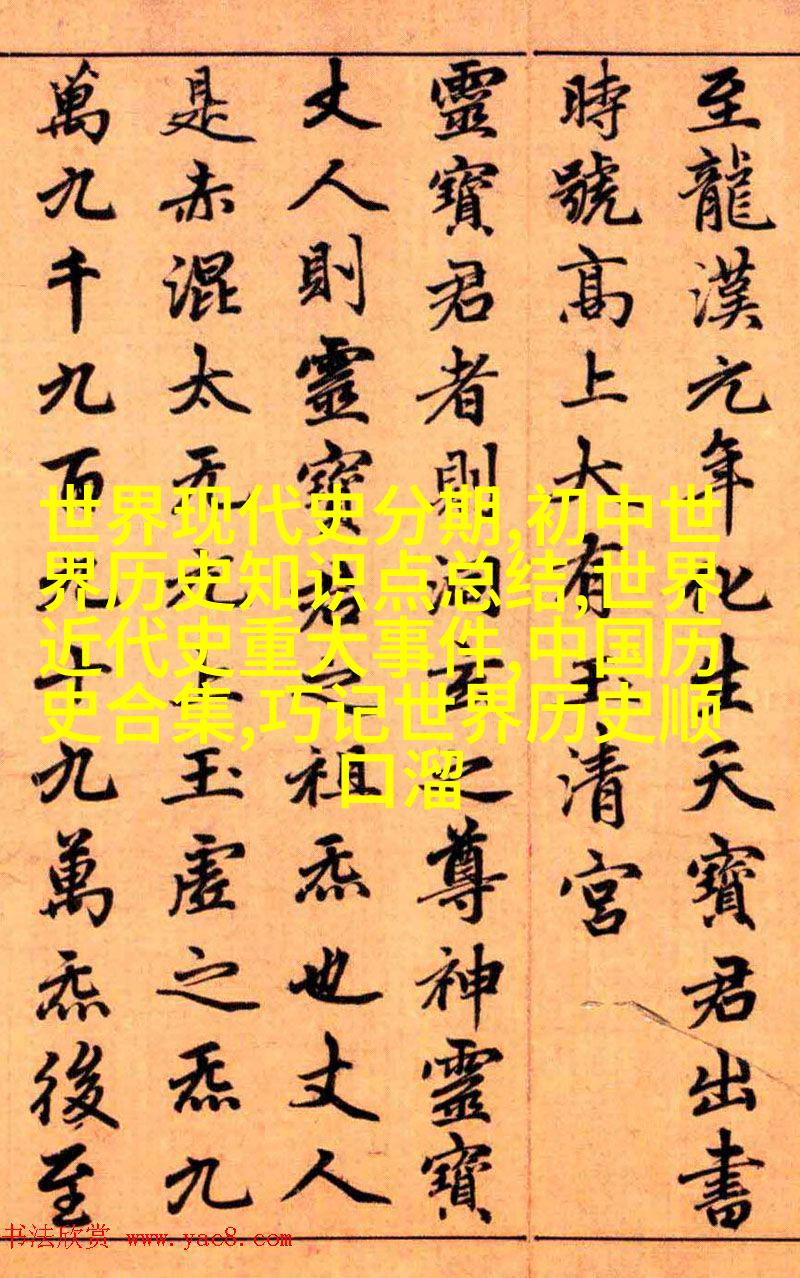 至龍漢元年化生天寶君出書
時號高上大有玉清宮
靈寶君者則洞玄之尊神靈寶
丈人則靈寶君之祖炁也丈人
是赤混太无元上玉虛之炁九
萬九千九百九十九萬炁後至
世界现代史分期,初中世
界历史知识点总结,世界
近代史重大事件,中国历
史合集,巧记世界历史顺
口溜
书法欣赏 www.yac8.com